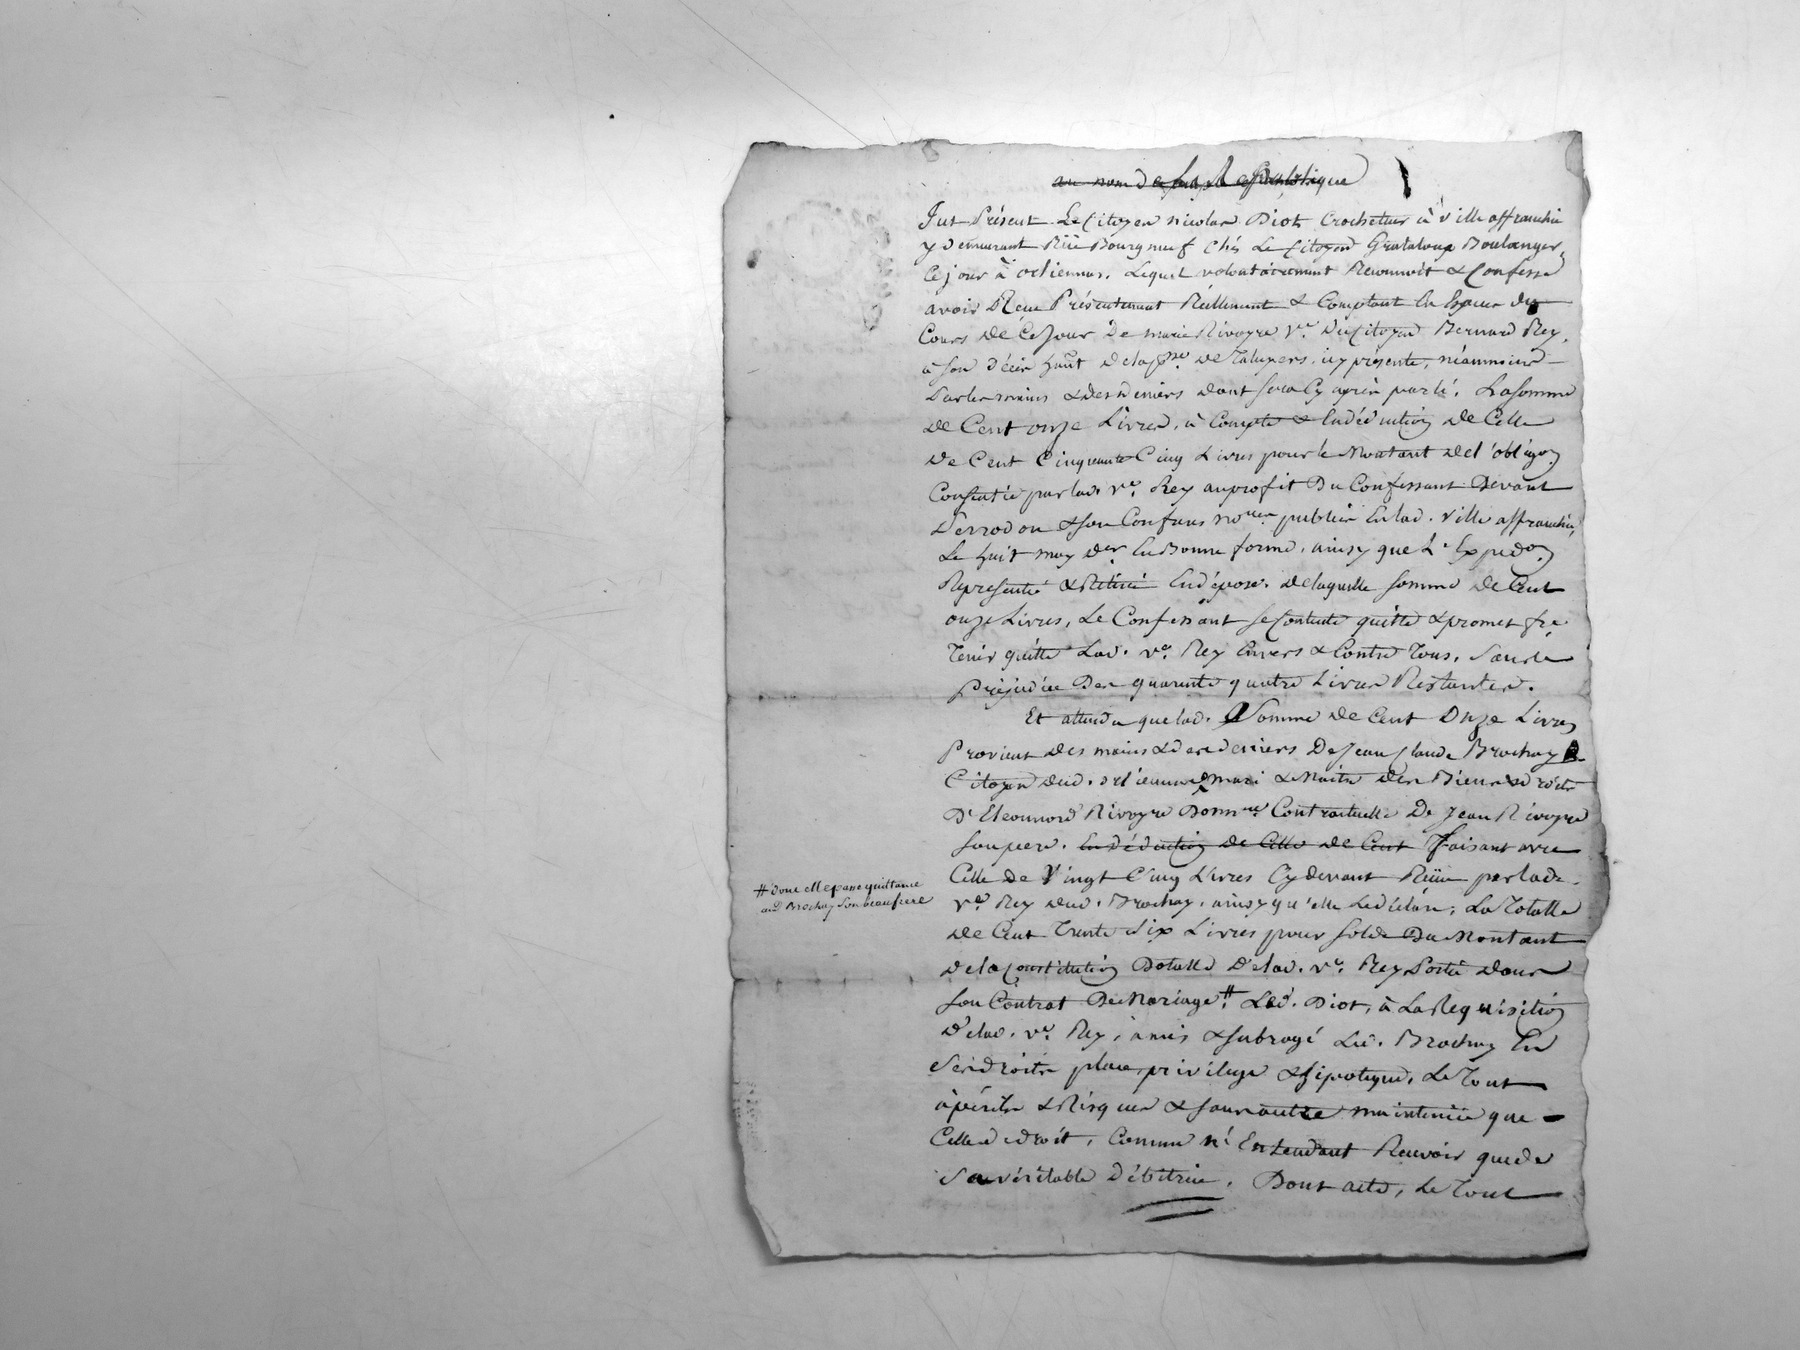 au nom de la République
Fut Présent Le Citoyen nicolas Diot Crocheteur à Ville affranchie
y demeurant Rüe Bourgneuf chés Le Citoyen Grataloup Boulanger,
Ce jour à orliennas. Lequel volontairement Reconnoit & Confesse
avoir Reçu Présentement Réellement & Comptant En Espèces du
Cours de Ce Jour De marie Rivoyre Ve. du Citoyen Bernard Rey,
à son décès habt. de la psse. de Taluyers, icy présente, néanmoins
Par les mains & des deniers dont sera Cy après parlé. La somme
de Cent onze Livres, à Compte & En déduction de Celle
de Cent Cinquante Cinq Livres pour le Montant de l'obligon.
Consentie par lad. Ve. Rey au profit Du Confessant Devant
& son Confrere nores. publics En lad. Ville affranchie,
Le huit may der. En Bonne forme, ainsy que L'Expédon.
Representée & Retirée En dépose. de laquelle somme de Cent
onze Livres, Le Confessant se Contente quitte & promet fre.
Tenir quitte Lad. ve. Rey Envers & Contre Tous, Sans le
préjudice Des quarante quatre Livres Restantes.
Et attendu que lad. Somme de Cent Onze Livres
Provient des mains & des deniers De Jean Claude Brochay
Citoyen dud. orliennas mari & Maitre des Biens & droits
D'Eleonnord Rivoyre Contractuelle De Jean Rivoyre
son pere. En déduction de Celle de Cent Faisant avec
Celle de Vingt Cinq Livres Cy devant Reçüe par lad.
ve. Rey dud. Brochay, ainsy qu'elle Le déclare, La Totalle
de Cent Trente Six Livres pour solde Du Montant
de la Constitution Dotalle De lad. ve. Rey Portée dans
son Contrat De Mariage # Led. Diot, à La Requisition
De lad. ve. Rey, à mis & subrogé Led. Brochay En
Ses droits place, privilege & hipoteque, Le Tout
à périls & Risques & sans autre maintenüe que
Celle de droit, Comme n'Entendant Recevoir que de
Sa véritable Débitrice. Dont acte, Le Tout
# dont elle passe quittance
aud Brochay son beaufrere